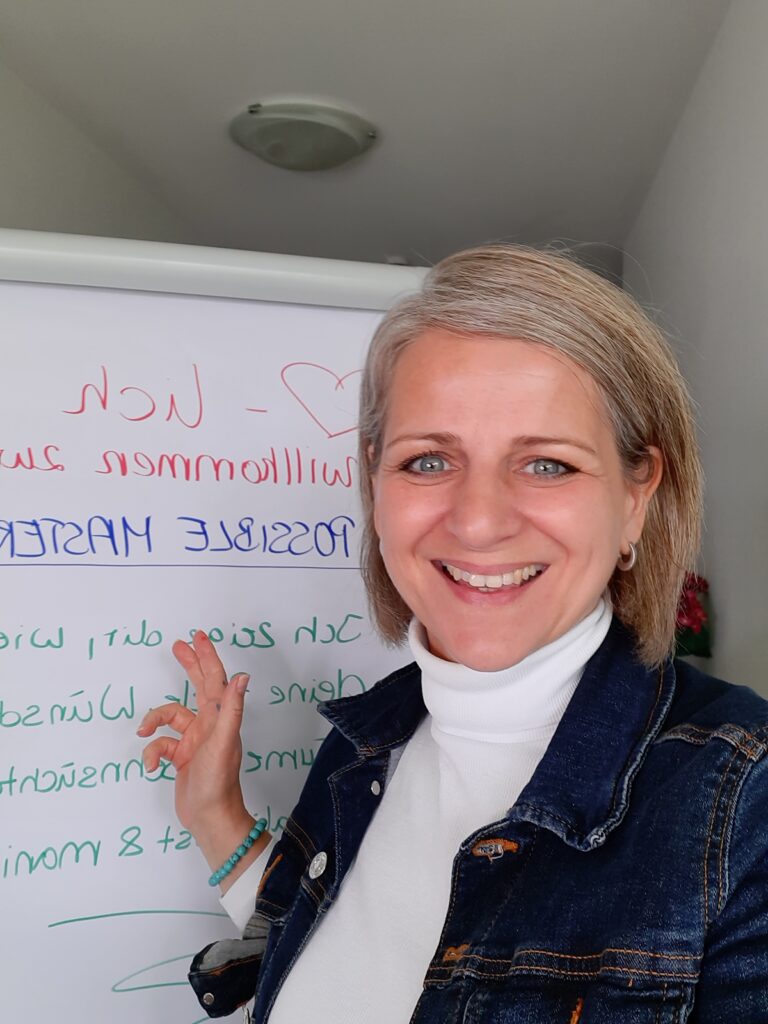 - lich
willkommen zur
POSSIBLE MASTER
Ich zeige dir, wie
deine Wünsc
ume hnsücht
st & mani